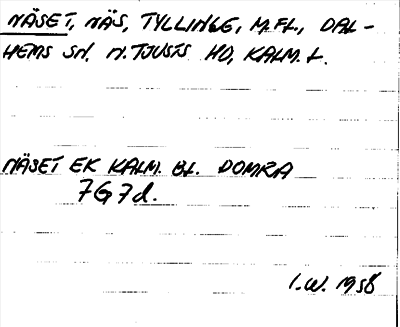 NÄSET, NÄS, TYLLINGE, M.FL., DAL-
HEMS SN. N. TJUSTS HD, KALM. L.
NÄSET EK KALM. BL. DOMRA
7G7d.
I.W. 1958